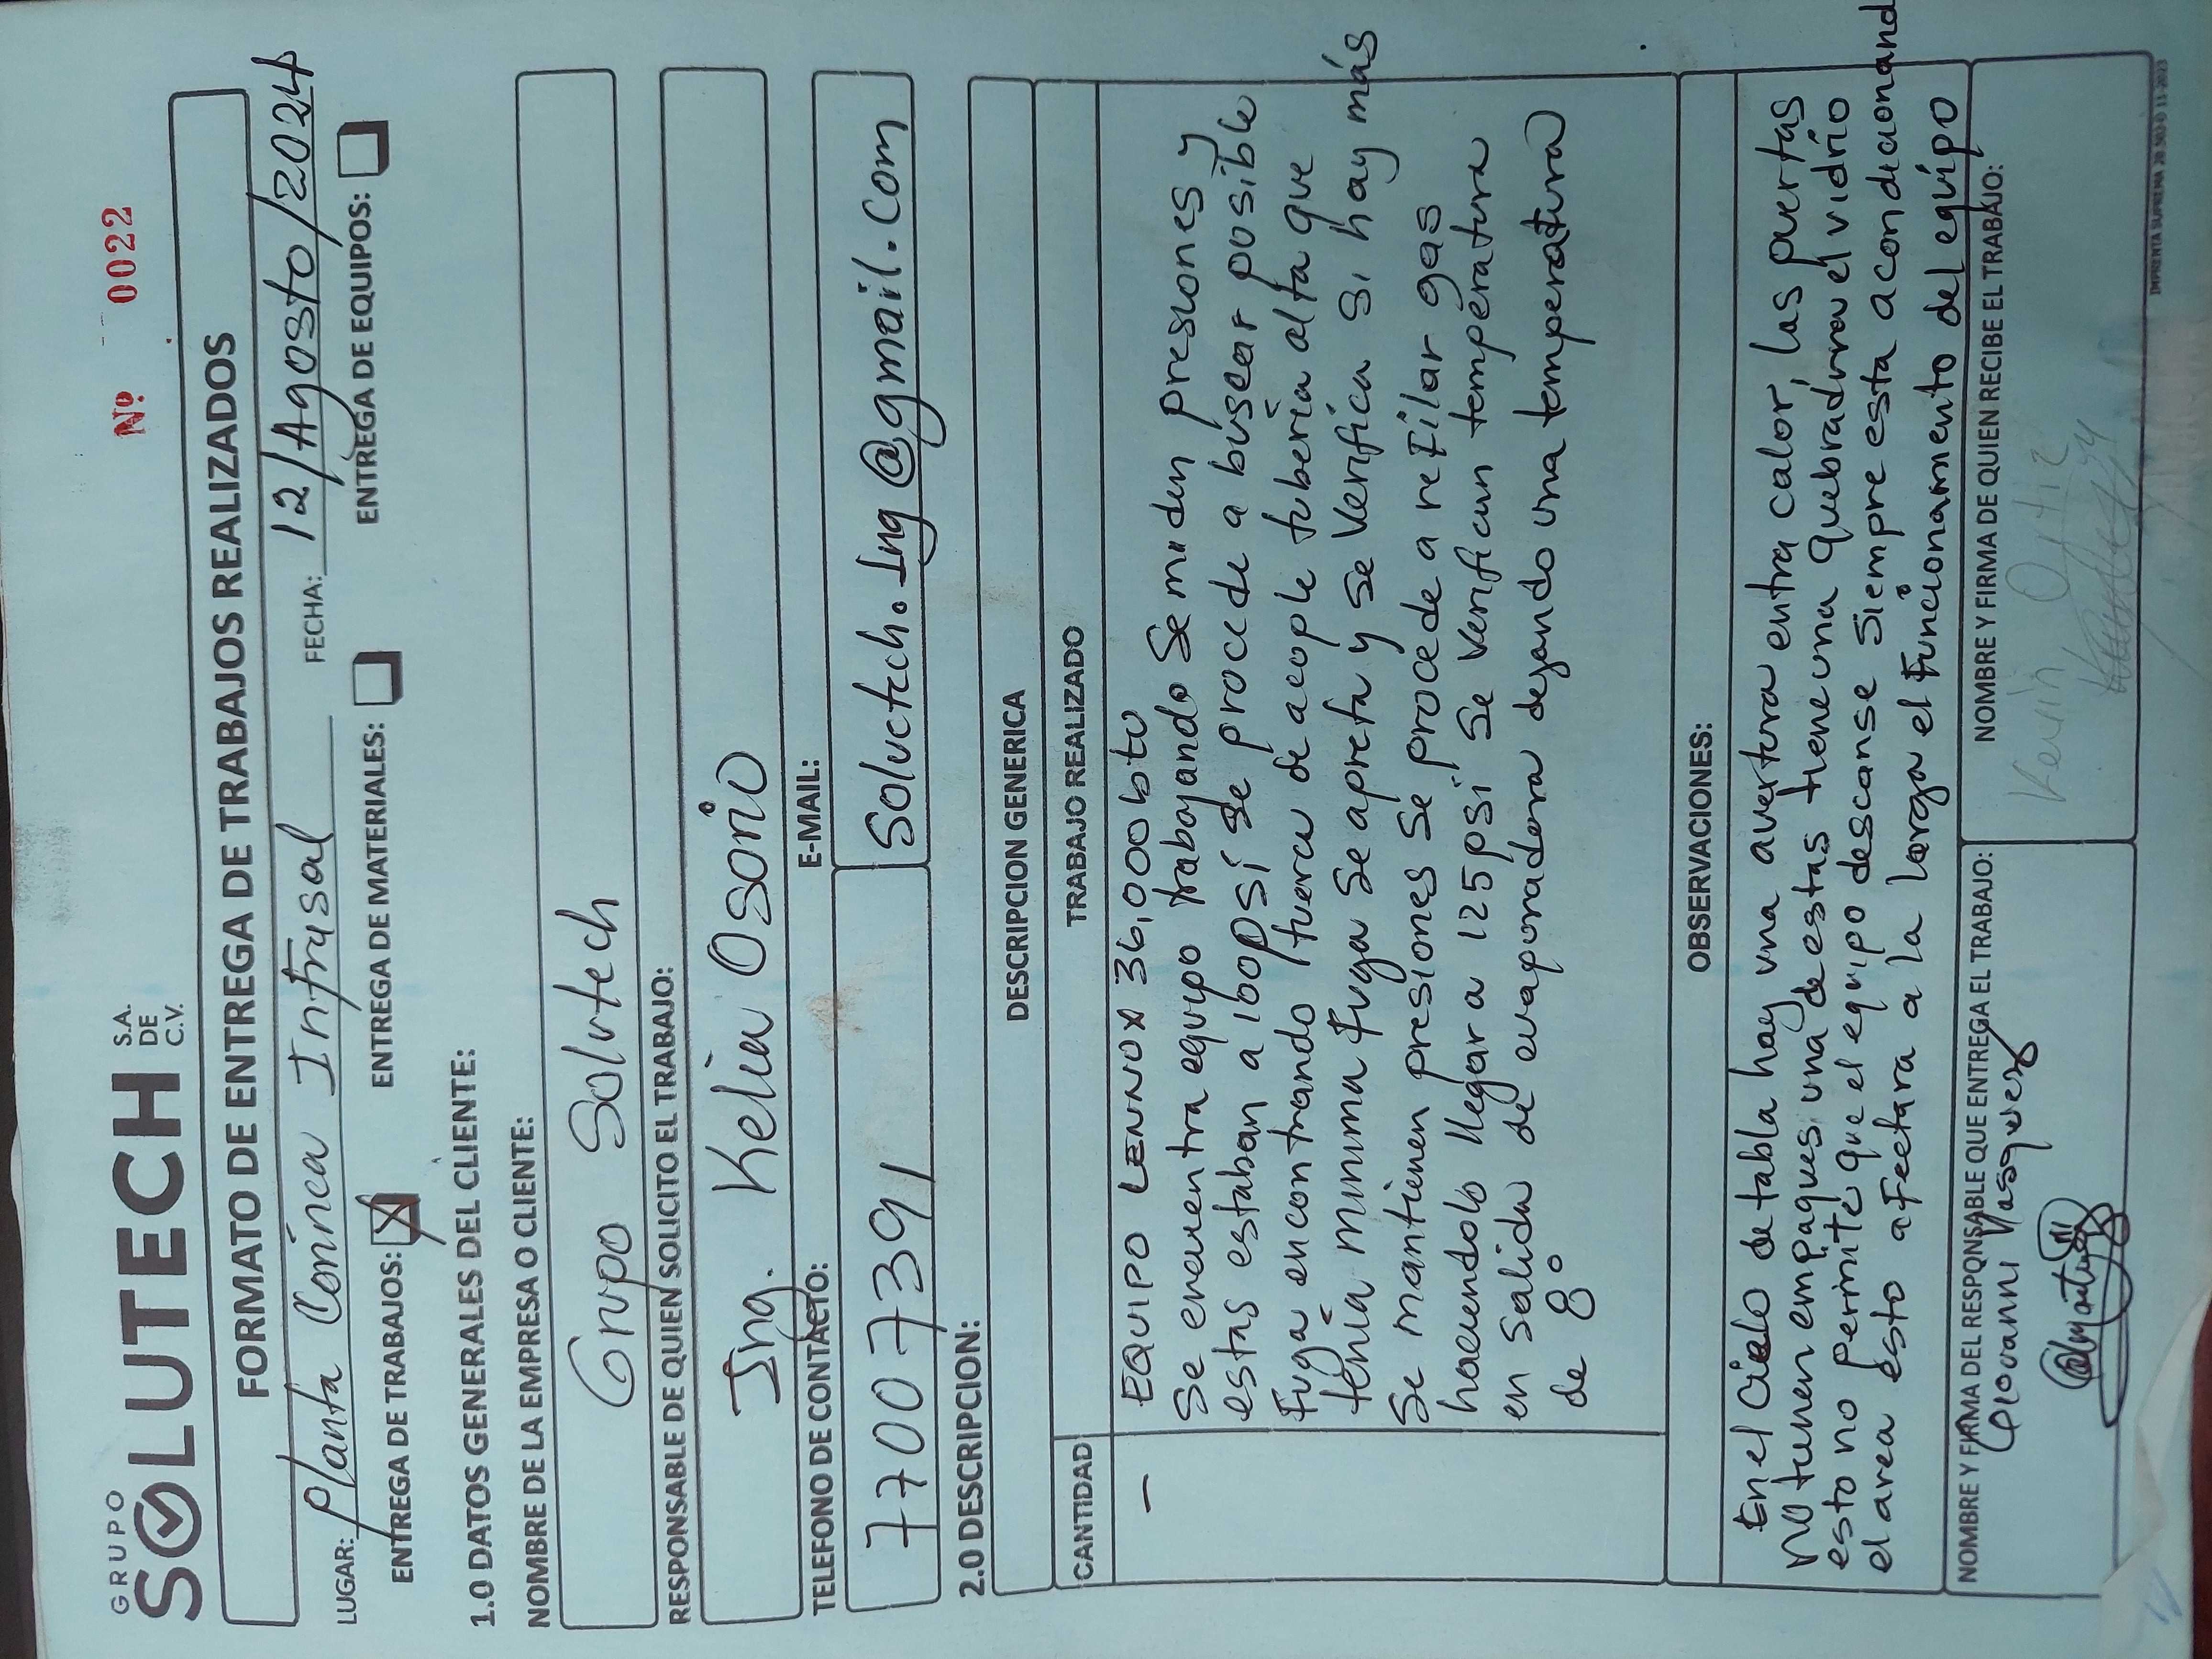 GRUPO
SOLUTECH S.A. DE C.V.
Nº 0022
FORMATO DE ENTREGA DE TRABAJOS REALIZADOS
LUGAR: Planta Conínca Infrasal FECHA: 12/Agosto/2024
ENTREGA DE TRABAJOS: X ENTREGA DE MATERIALES: ENTREGA DE EQUIPOS:
1.0 DATOS GENERALES DEL CLIENTE:
NOMBRE DE LA EMPRESA O CLIENTE:
Grupo Solutech
RESPONSABLE DE QUIEN SOLICITO EL TRABAJO:
Ing. Kelia Osorio
TELEFONO DE CONTACTO: E-MAIL:
77007391 Solutech.Ing@gmail.com
2.0 DESCRIPCION:
DESCRIPCION GENERICA
CANTIDAD TRABAJO REALIZADO
— EQUIPO LENNOX 36,000 btu
Se encuentra equipo trabajando Se miden presiones y
estas estaban a 100psi se procede a buscar posible
Fuga encontrando tuerca de acople tuberia alta que
tenia minima Fuga Se apreta y se Verifica si hay más
Se mantienen presiones Se procede a reFilar gas
haciendolo llegar a 125psi Se Verifican temperatura
en salida de evaporadora dejando una temperatura
de 8°
OBSERVACIONES:
En el Cielo de tabla hay una avertura entra calor, las puertas
no tienen empaques una de estas tiene una quebradura el vidrio
esto no permite que el equipo descanse siempre esta acondicionand
el area esto afectara a la larga el Funcionamento del equipo
NOMBRE Y FIRMA DEL RESPONSABLE QUE ENTREGA EL TRABAJO: NOMBRE Y FIRMA DE QUIEN RECIBE EL TRABAJO:
Giovanni Vasquez Kevin Ortiz